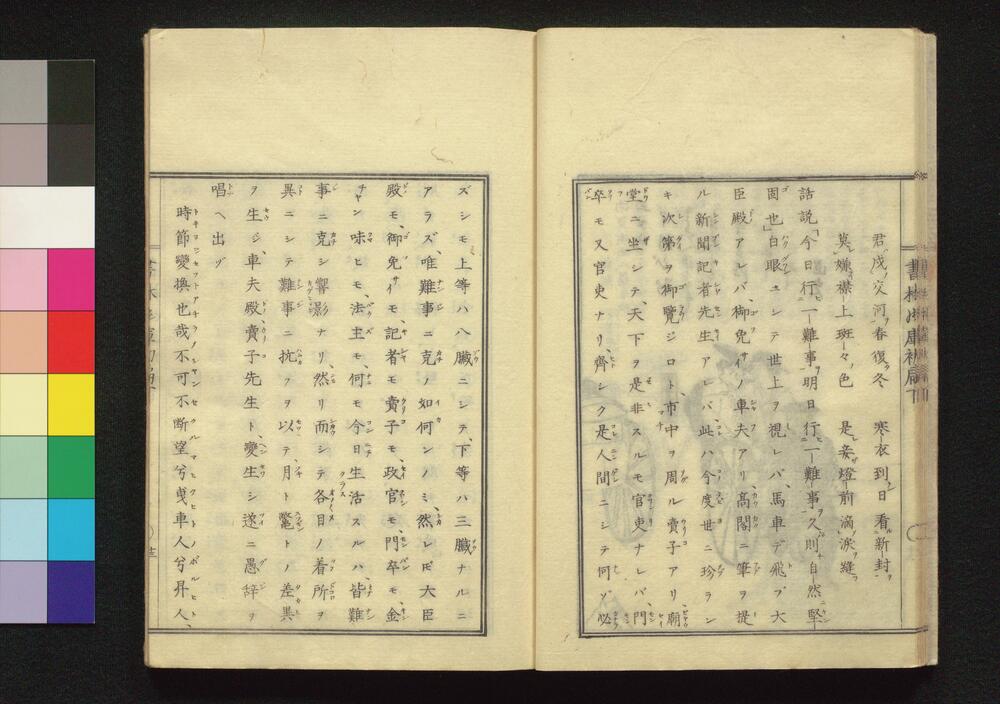 君戍交河春復冬　寒衣到日看新封
莫嫌襟上斑々色　是妾燈前滴涙縫
話説「今日行一難事明日行一難事久則自然堅
固也」白眼ニシテ世上ヲ視レバ、馬車デ飛ブ大
臣殿アレバ、御免サイノ車夫アリ高閣ニ筆ヲ提
ル新聞記者先生アレバ此ハ今度世ニ珍ラシ
キ次第ヲ御覽ジロト、市中ヲ周ル賣子アリ、廟
堂ニ坐シテ、天下ヲ是非スルモ官吏ナレバ、門
卒モ又官吏ナリ、齊シク是人間ニシテ何ゾ必
ズシモ上等ハ八臓ニシテ、下等ハ三臓ナルニ
アラズ、唯難事ニ克ノ如何ンノミ、然レ𪜈大臣
殿モ、御免サイモ、記者モ賣子モ、政官モ、門卒モ、金
チヤン味ヒモ、法主モ、何モ今日生活スルハ、皆難
事ニ克シ響影ナリ、然リ而シテ各目ノ着所ヲ
異ニシテ難事ニ抗フヲ以テ、月ト鼈トノ差異
ヲ生ジ車夫殿賣子先生ト、變生シ遂ニ愚辞ヲ
唱ヘ出ヅ
時節變換也哉不可不斷望兮曳車人兮昇人、